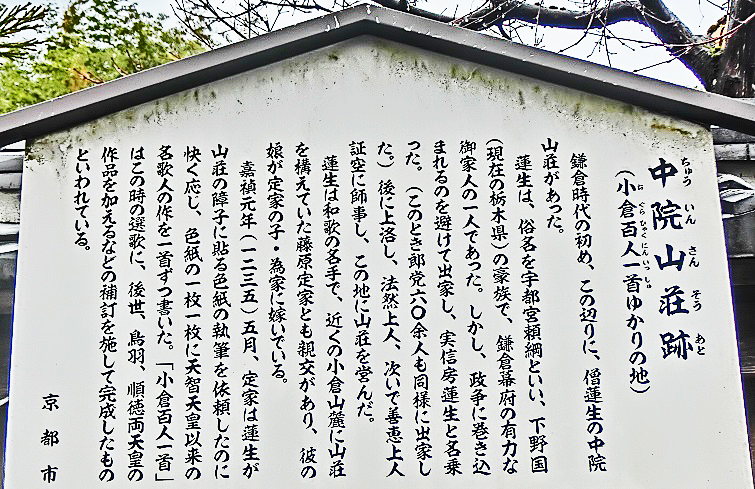 中院山荘跡
ちゅういんさんそうあと
(小倉百人一首ゆかりの地)
おぐらひゃくにんいっしゅ
鎌倉時代の初め、この辺りに、僧蓮生の中院
山荘があった。
蓮生は、俗名を宇都宮頼綱といい、下野国
(現在の栃木県)の豪族で、鎌倉幕府の有力な
御家人の一人であった。しかし、政争に巻き込
まれるのを避けて出家し、実信房蓮生と名乗
った。(このとき郎党六〇余人も同様に出家し
た。)後に上洛し、法然上人、次いで善恵上人
証空に師事し、この地に山荘を営んだ。
蓮生は和歌の名手で、近くの小倉山麓に山荘
を構えていた藤原定家とも親交があり、彼の
娘が定家の子・為家に嫁いでいる。
嘉禎元年(一二三五)五月、定家は蓮生が
山荘の障子に貼る色紙の執筆を依頼したのに
快く応じ、色紙の一枚一枚に天智天皇以来の
名歌人の作を一首ずつ書いた。「小倉百人一首」
はこの時の選歌に、後世、鳥羽、順徳両天皇の
作品を加えるなどの補訂を施して完成したもの
といわれている。
京都市